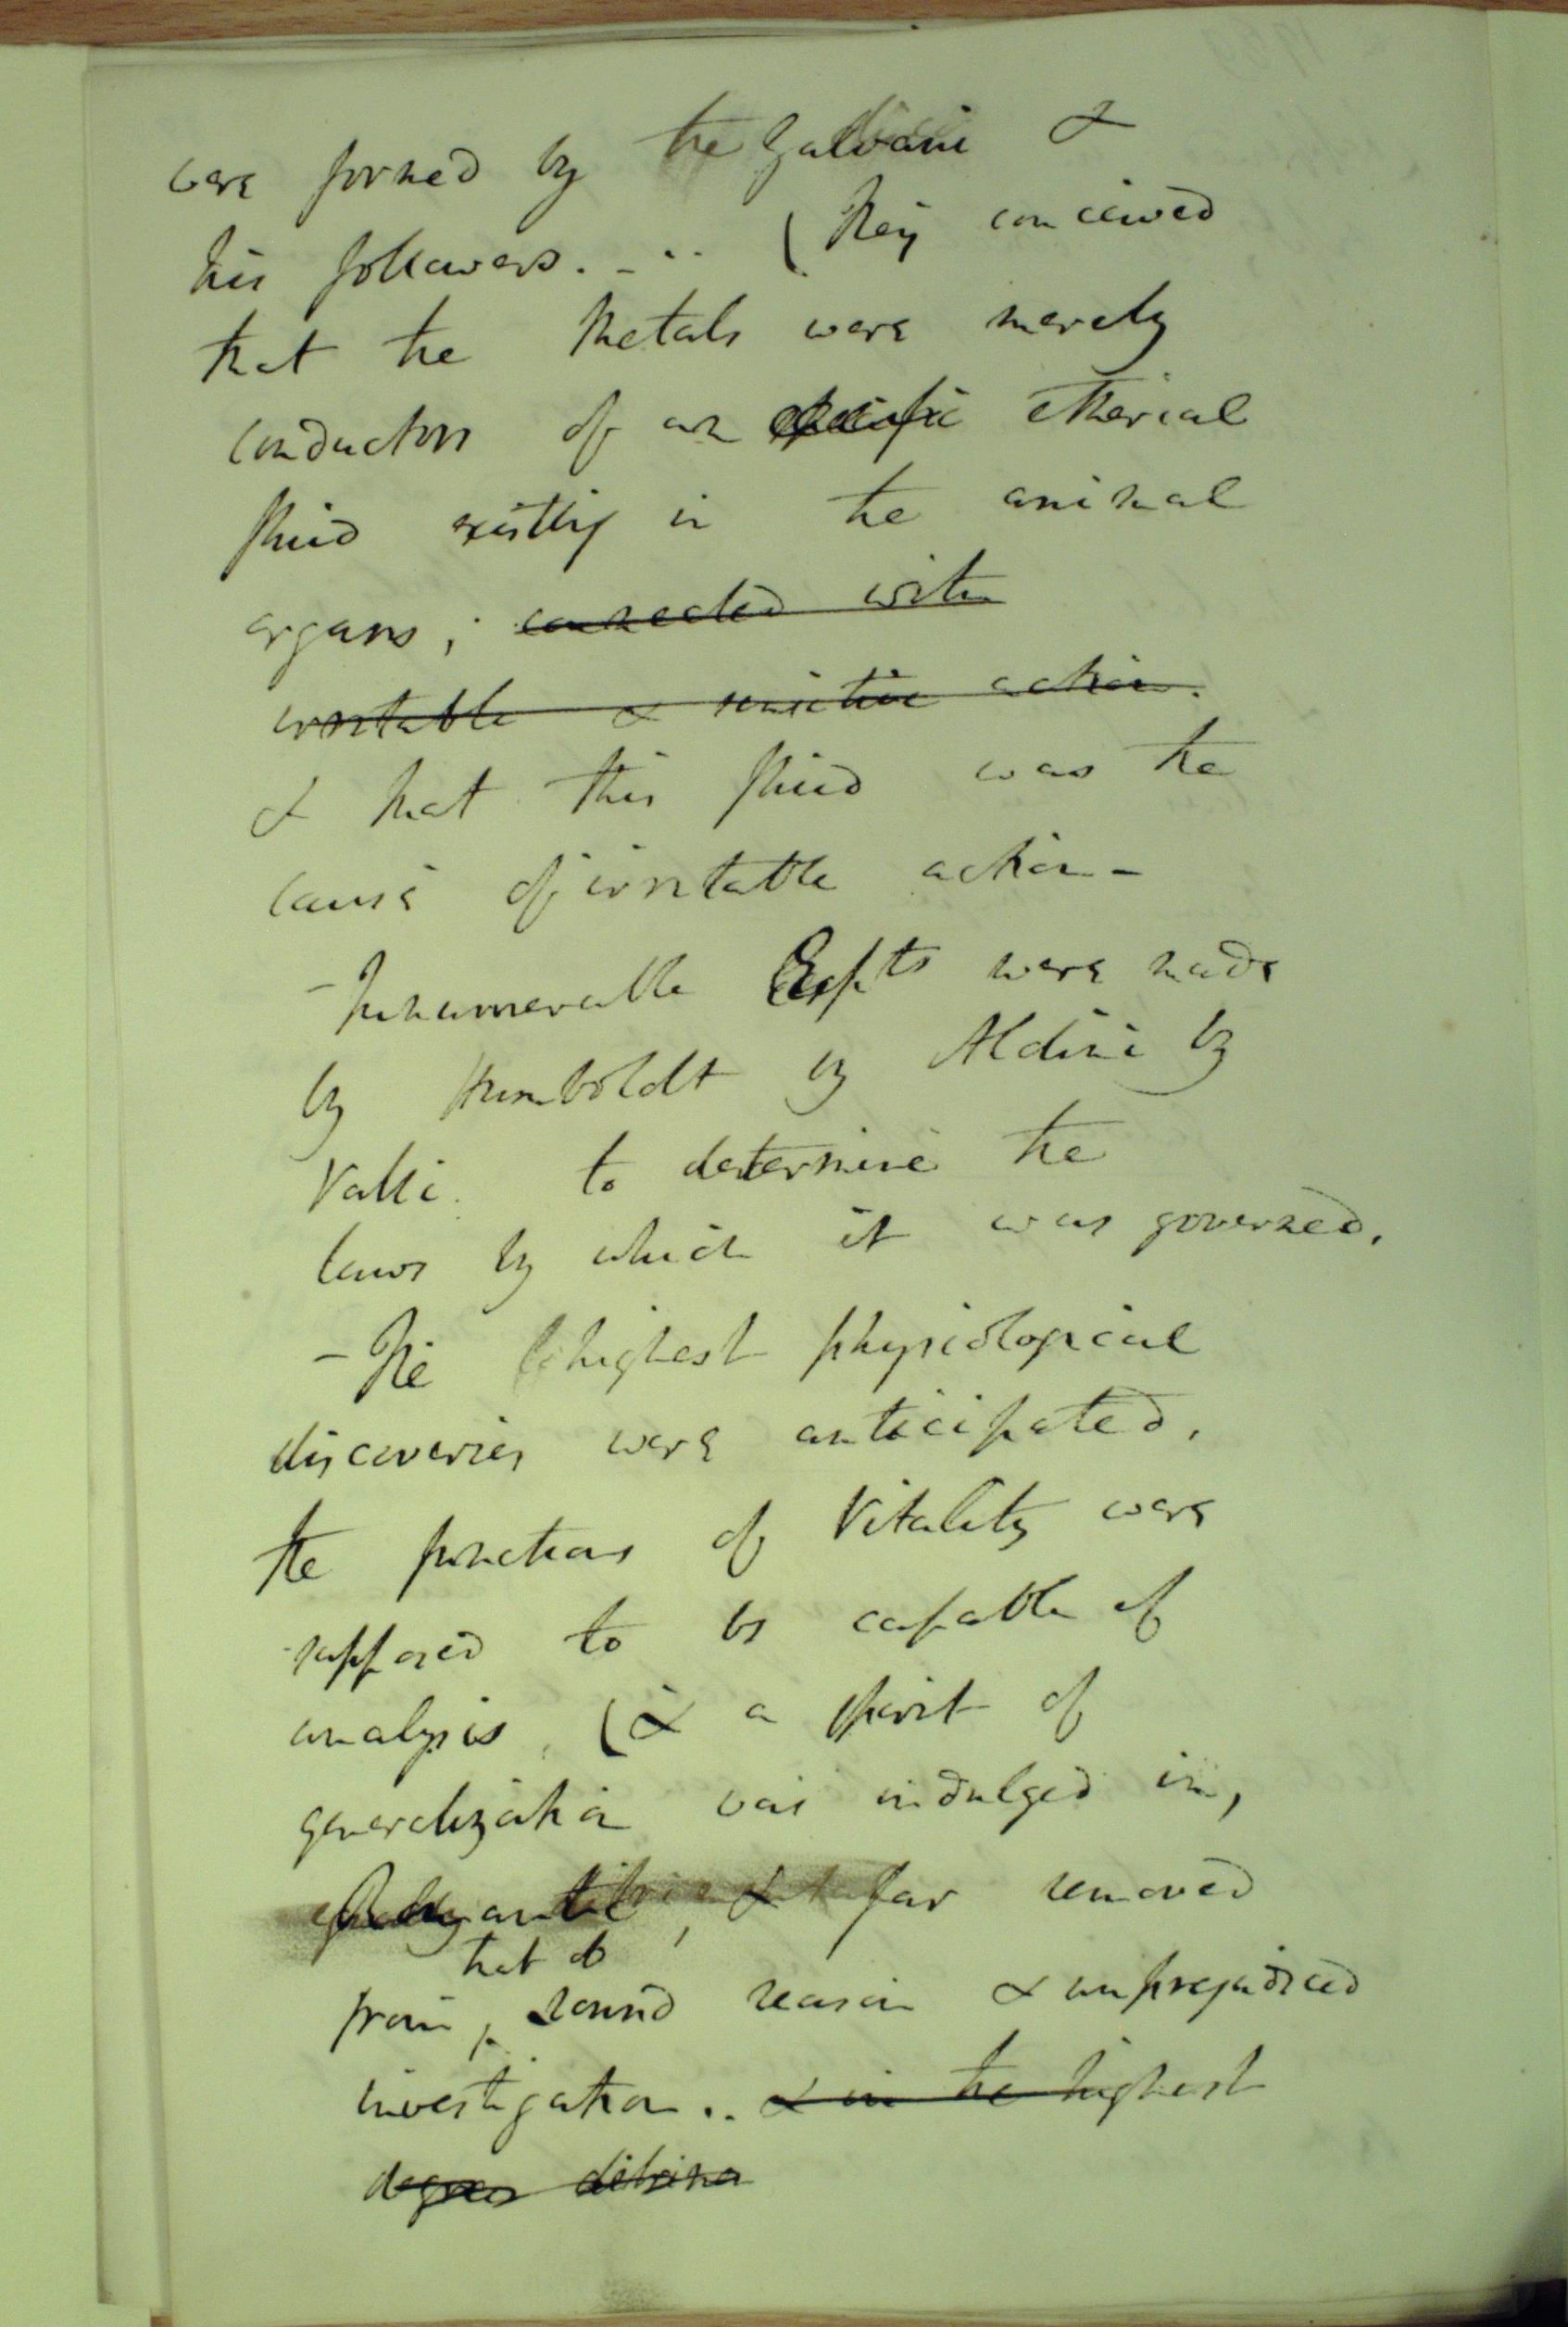 were formed by the Galvani &
his followers. - .. (They conceived
that the Metals were merely
conductors of an specific etherial
fluid existing in the animal
organs; connected with
irritable & sensitive action.
& that this fluid was the
cause of irritable action -
- Innumerable Expts were made
by Humboldt by Aldini by
Valli. to determine the
laws by which it was governed.
- The highest physiological
discoveries were anticipated,
the functions of Vitality were
supposed to be capable of
analysis, (& a spirit of
generalization was indulged in,
, & far removed
that of
from, sound reason & unprejudiced
investigation.. & in the highest
degree